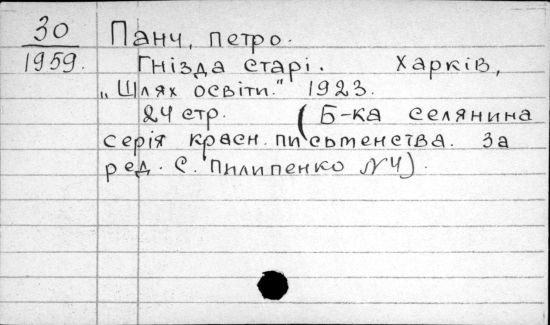 30
1959.
Панч, петро.
Гнізда старі. Харків,
„Шлях освіти." 1923.
24 стр. (Б-ка селянина
серія красн. письменства. За
ред. С. Пилипенко №4).